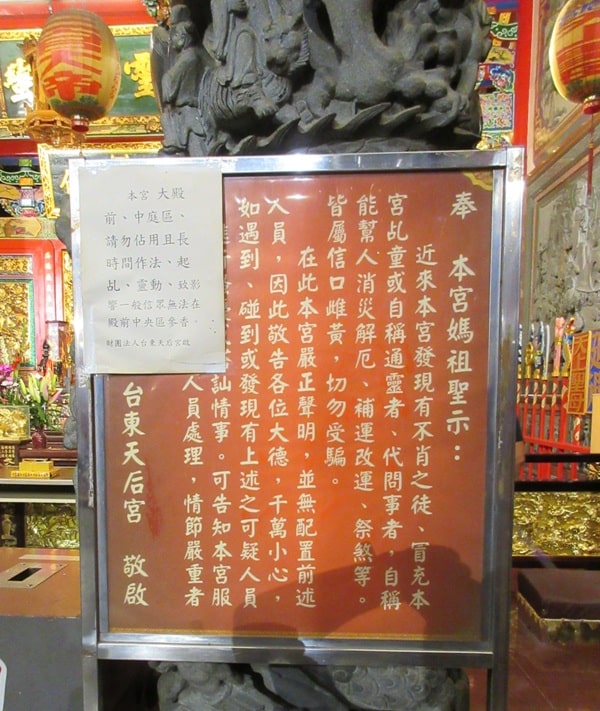 奉 本宮媽祖聖示：
近來本宮發現有不肖之徒、冒充本
宮乩童或自稱通靈者、代問事者，自稱
能幫人消災解厄、補運改運、祭煞等。
皆屬信口雌黃，切勿受騙。
在此本宮嚴正聲明，並無配置前述
人員，因此敬告各位大德，千萬小心，
如遇到、碰到或發現有上述之可疑人員
訕情事。可告知本宮服
人員處理，情節嚴重者
台東天后宮 敬啟
本宮 大殿
前、中庭區、
請勿佔用且長
時間作法、起
乩、靈動、致影
響一般信眾無法在
殿前中央區參香。
財團法人台東天后宮啟
靈
帝